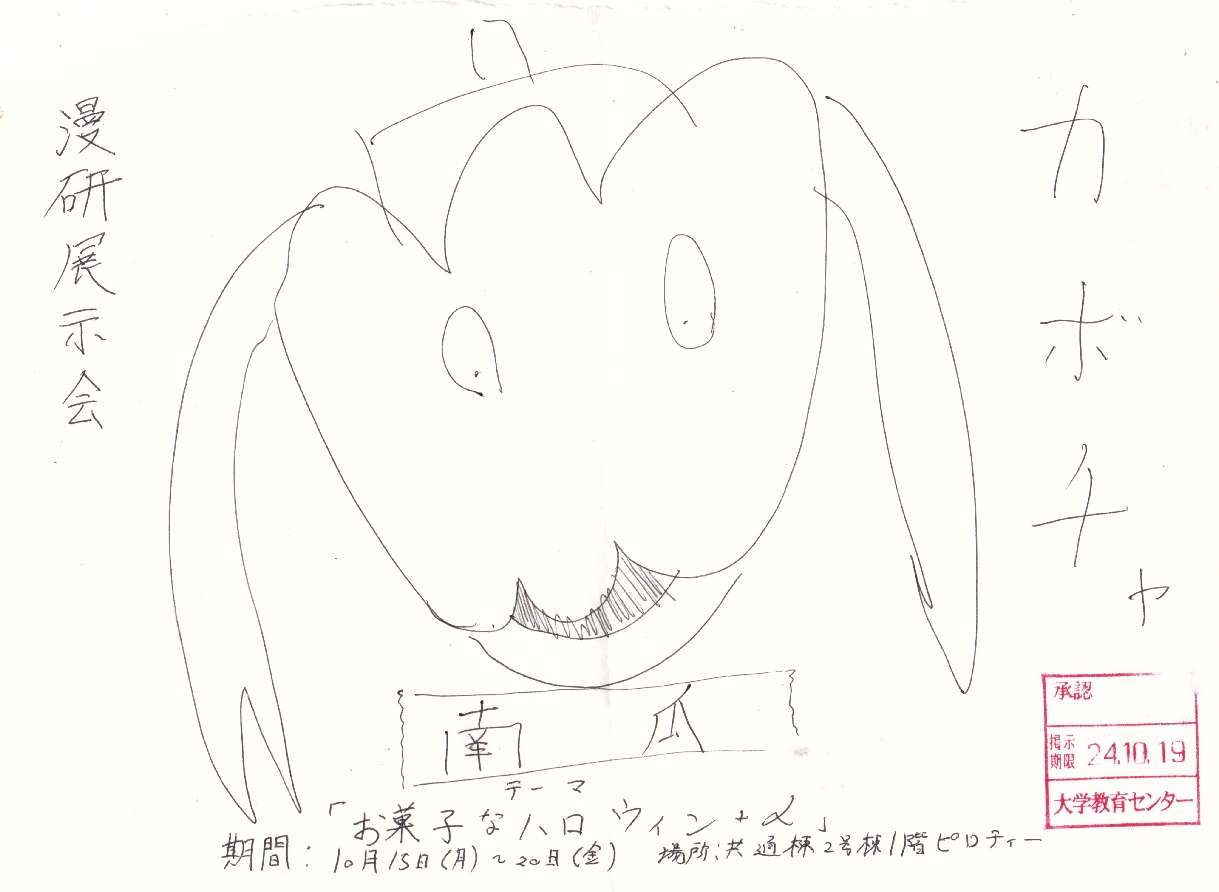 カボチャ
漫研展示会
南瓜
テーマ
「お菓子なハロウィン+α」
期間：10月15日(月)～20日(金)
場所：共通棟2号棟1階ピロティー
承認
掲示期限 24.10.19
大学教育センター